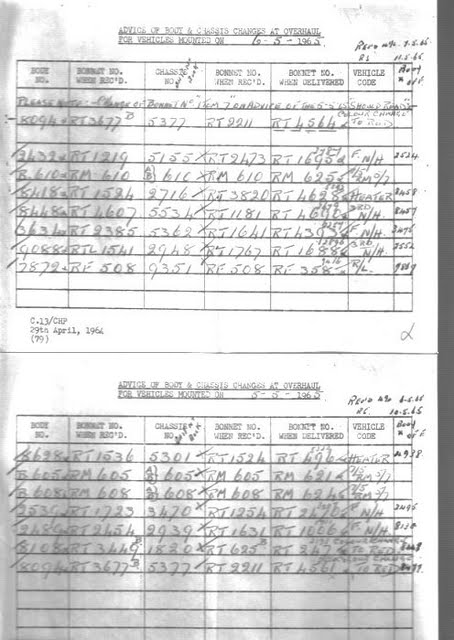 ADVICE OF BODY & CHASSIS CHANGES AT OVERHAUL
FOR VEHICLES MOUNTED ON 6-5-1965
11.5.65
BODY NO. BONNET NO. WHEN REC'D. CHASSIS NO. BONNET NO. WHEN REC'D. BONNET NO. WHEN DELIVERED VEHICLE CODE Body off
PLEASE NOTE:- Change of Bonnet No "Item 7" on ADVICE OF THE 5-5-65 SHOULD READ:-
8094 RT3677 B 5377 RT2211 RT4564 COLOUR CHANGE TO RED
2432 RT1219 5155 RT2473 RT1695 F. N/H 2524
B.610 RM 610 A B 610 RM 610 RM 625
8418 RT1524 2716 RT3820 RT4628 HEATER 8458
8448 RT4607 5534 RT1181 RT4690 3RD. N/H. 8457
3634 RT2385 5362 RT1641 RT4395 F. N/H. 3475
9088 RTL1541 2948 RT1767 RT1688 3RD. N/H 2552
7872 RF 508 9351 RF 508 RF 358 R/L. 9889
C.13/CHP
29th April, 1964
(79)
ADVICE OF BODY & CHASSIS CHANGES AT OVERHAUL
FOR VEHICLES MOUNTED ON 5-5-1965
10.5.65
BODY NO. BONNET NO. WHEN REC'D. CHASSIS NO. BONNET NO. WHEN REC'D. BONNET NO. WHEN DELIVERED VEHICLE CODE Body off
8628 RT1536 5301 RT1524 RT496 HEATER 4938
B.605 RM 605 A B 605 RM 605 RM 621
B.608 RM 608 A B 608 RM 608 RM 624
2539 RT1723 3470 RT1254 F. N/H 2495
RT2454 2939 RT1631 RT1006 F. N/H
8108 RT3449 B 1820 RT625 B COLOUR CHANGE TO RED
8094 RT3677 B 5377 RT2211 RT4561 COLOUR CHANGE TO RED